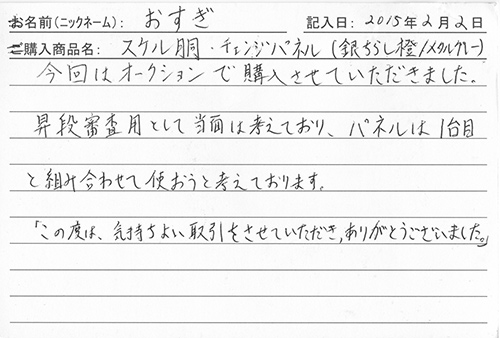 お名前(ニックネーム): おすぎ 記入日: 2015年2月2日
ご購入商品名: スケル胴・チェンジパネル(銀ちらし橙/メタルグレー)
今回はオークションで購入させていただきました。
昇段審査用として当面は考えており、パネルは1台目
と組み合わせて使おうと考えております。
「この度は、気持ちよい取引をさせていただき、ありがとうございました。」